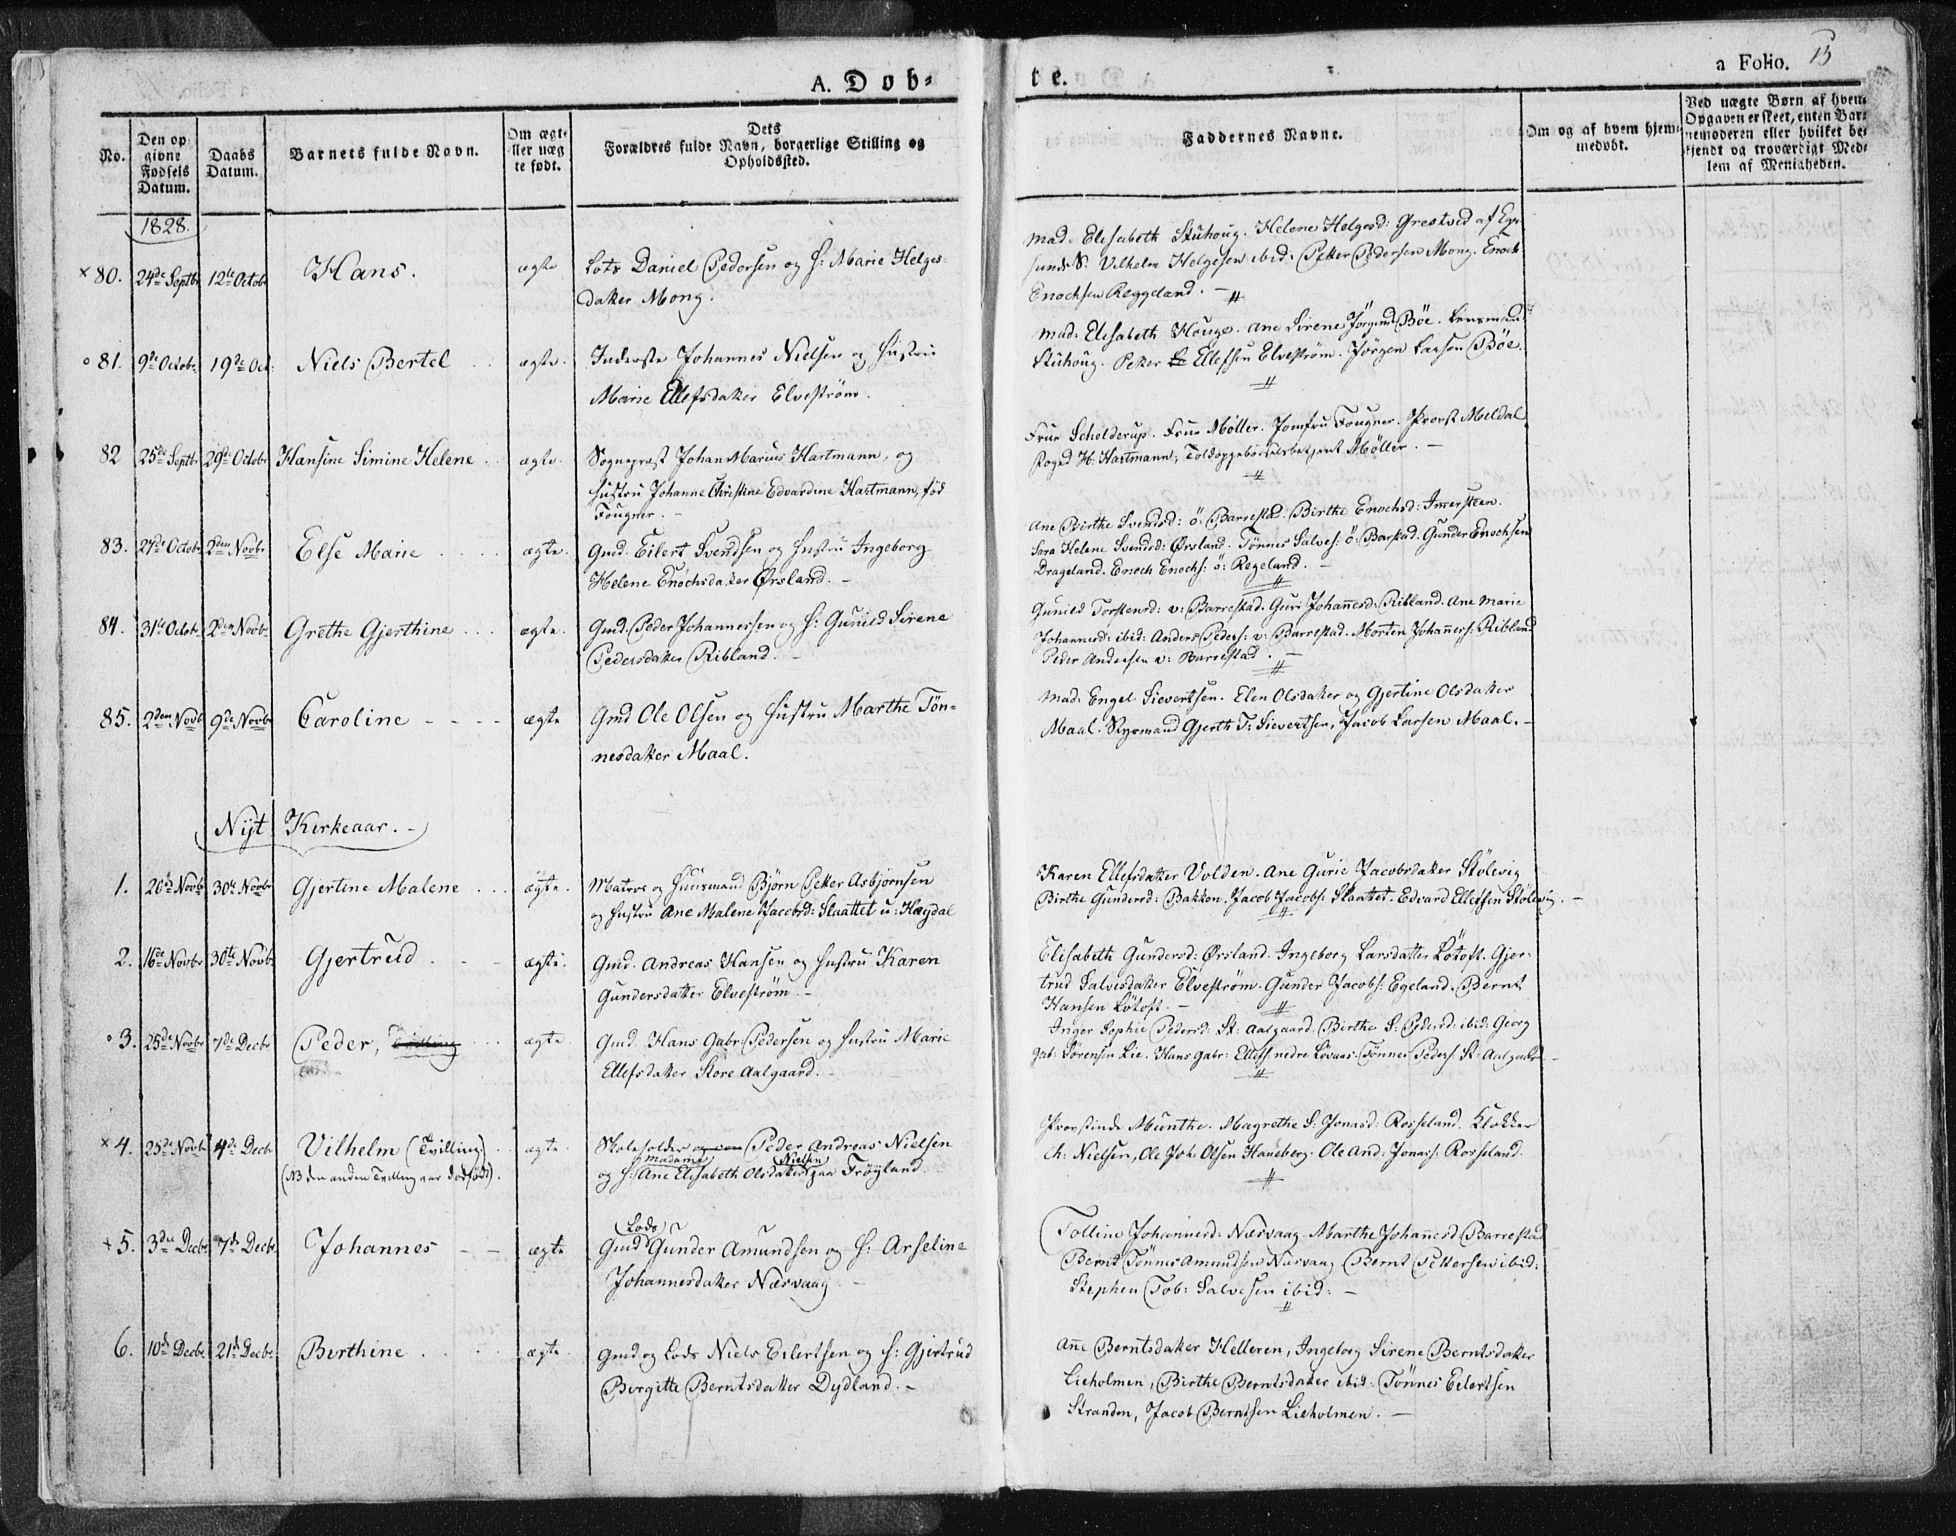 A. Døb-
te.
a Folio. 15
No.
Den opgivne Fødsels Datum.
Daabs Datum.
Barnets fulde Navn.
Om ægte eller uægte født.
Dets Forældres fulde Navn, borgerlige Stilling og Opholdssted.
Faddernes Navne.
Om og af hvem hjemmedøbt.
Ved uægte Børn af hvem Opgaven er skeet, enten Barnemoderen eller hvilket bekjendt og troværdigt Medlem af Menigheden.
1828.
× 80. 24de Septbr 12te Octobr Hans. ægte Lots Daniel Pedersen og H: Marie Helges-
datter Mong.
Mad: Elisabeth Stuhoug. Helene Helgesd: Grestved af Eger-
sund S. Vilhelm Helgesen ibid: Petter Pedersen Mong. Enoch
Enochsen Reggeland. —
o 81. 9de Octobr. 19de Oct: Niels Bertel ægte. Inderste Johannes Nielsen og Hustru
Marie Ellefsdatter Elvestrøm.
Mad: Elisabeth Houge. Ane Sirene Jørgensd Bøe. Lensmand
Stuhoug. Petter Ellefsen Elvestrøm. Jørgen Larsen Bøe.
82 25de Septbr 29de Octobr Hansine Simine Helene ægte. Sognepræst Johan Marius Hartmann, og
Hustru Johanne Christine Edvardine Hartmann, fød
Fougner. —
Frue Schelderup. Frue Møller. Jomfru Fougner. Provst Meldal
Foged H. Hartmann, Toldoppebørselsbetjent Møller. —
83. 27de Octobr 2den Novbr Else Marie ægte. Gmd. Eilert Svendsen og Hustru Ingeborg
Helene Enochsdatter Ørsland. —
Ane Birthe Svendsd: ö: Barrestad. Birthe Enochsd: Immersteen.
Sara Helene Svendsd: Ørsland. Tønnes Salves: ö: Barstad. Gunder Enochsen
Drageland. Enoch Enochs: ö: Regeland. —
84. 31te Octobr. 2den Novbr Grethe Gjerthine ægte. Gmd. Peder Johannessen og H: Gunild Sirene
Pedersdatter Ribland. —
Gunild Torstensd: v: Barrestad. Guri Johannesd: Ribland. Ane Marie
Johannesd: ibid: Anders Peders: v: Barrestad. Morten Johanness: Ribland
Peder Andersen v: Barrestad. —
85. 2den Novb 9de Novbr Caroline ægte Gmd Ole Olsen og Hustru Marthe Tøn-
nesdatter Maal.
Mad: Engel Sievertsen. Elen Olsdatter og Gjertine Olsdatter
Maal. Gjerth T: Sievertsen, Jacob Larsen Maal. —
Nyt Kirkeaar. —
1. 20de Novb 30te Novbr Gjertine Malene ægte. Matros og Huusmand Bjørn Petter Asbjørnsen
og Hustru Ane Malene Jacobsd: Slaattet u: Hægdal
Karen Ellefsdatter Volden. Ane Gurie Jacobsdatter Stølevig
Birthe Gundersd: Bakken. Jacob Jacobs: Slaattet. Edvard Ellefsen Stølevig. —
2. 16de Novbr 30te Novbr Gjertrud ægte. Gmd. Andreas Hansen og Hustru Karen
Gundersdatter Elvestrøm. —
Elisabeth Gundersd: Ørsland. Ingeborg Larsdatter Løtoft. Gjer-
trud Salvesdatter Elvestrøm. Gunder Jacobs: Egeland. Bernt
Hansen Løtoft. —
o 3. 25de Novbr 7de Decbr Peder, Tvilling ægte. Gmd. Hans Gabr. Pedersen og Hustru Marie
Ellefsdatter Store Aalgaard. —
Inger Sophie Pedersd: St: Aalgaard. Birthe S: Pedersd: ibid: Georg
Gab: Sørensen Lie. Hans Gabr: Ellefs nedre Løvaas. Tønnes Peders: St: Aalgaard —
× 4. 25de Novbr 4de Decbr Vilhelm (Tvilling) ægte. Skoleholder Peder Andreas Nielsen
(NB den anden Tvilling var dødfødt). og H: madame Ane Elisabeth Olsdatter Nielsen paa Frøyland.
Provstinde Munthe. Magrethe S: Jonasd: Rosseland. Klokker
Ch: Nielsen, Ole Joh: Olsen Haneberg. Ole And: Jonas: Rosseland.
+ 5. 3die Decbr. 7de Decbr. Johannes ægte Gmd Lods Gunder Amundsen og H: Arseline
Johannesdatter Næsvaag. —
Tolline Johannesd: Næsvaag. Marthe Johannesd: Barrestad
Bernt Tønnes Amundsen Næsvaag Bernt Pettersen ibid:
Stephen Tob: Salvesen ibid: —
6. 10de Decbr. 21de Decbr. Berthine ægte. Gmd og Lods Niels Eilertsen og H: Gjertrud
Birgitte Berntsdatter Dydland. —
Ane Berntsdatter Helleren, Ingeborg Sirene Berntsdatter
Lieholmen, Birthe Berntsdatter ibid. Tønnes Eilertsen
Stranden, Jacob Berntsen Lieholmen. —